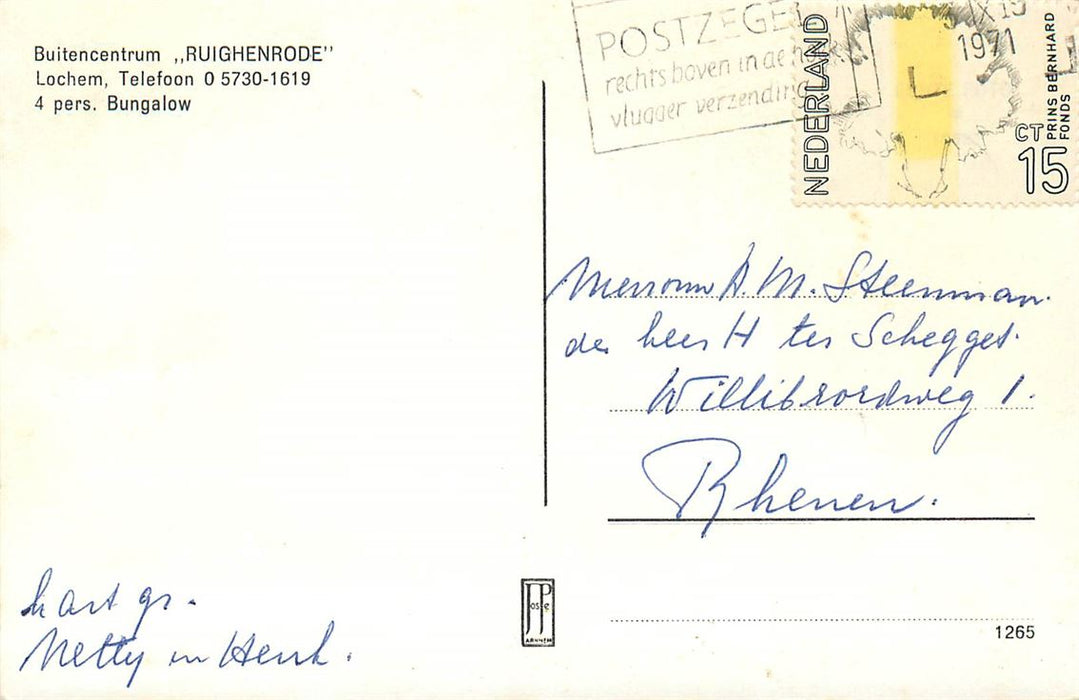 Buitencentrum „RUIGHENRODE”
Lochem, Telefoon 0 5730-1619
4 pers. Bungalow
POSTZEGEL
rechts boven in de hoek
vlugger verzending
IX 19
1971
L
NEDERLAND
CT
15
PRINS BERNHARD
FONDS
A. M. Steenman.
de heer H ter Schegget.
Willibrordweg 1.
Rhenen.
hart gr.
Netty en Henk.
JP
ARNHEM
1265